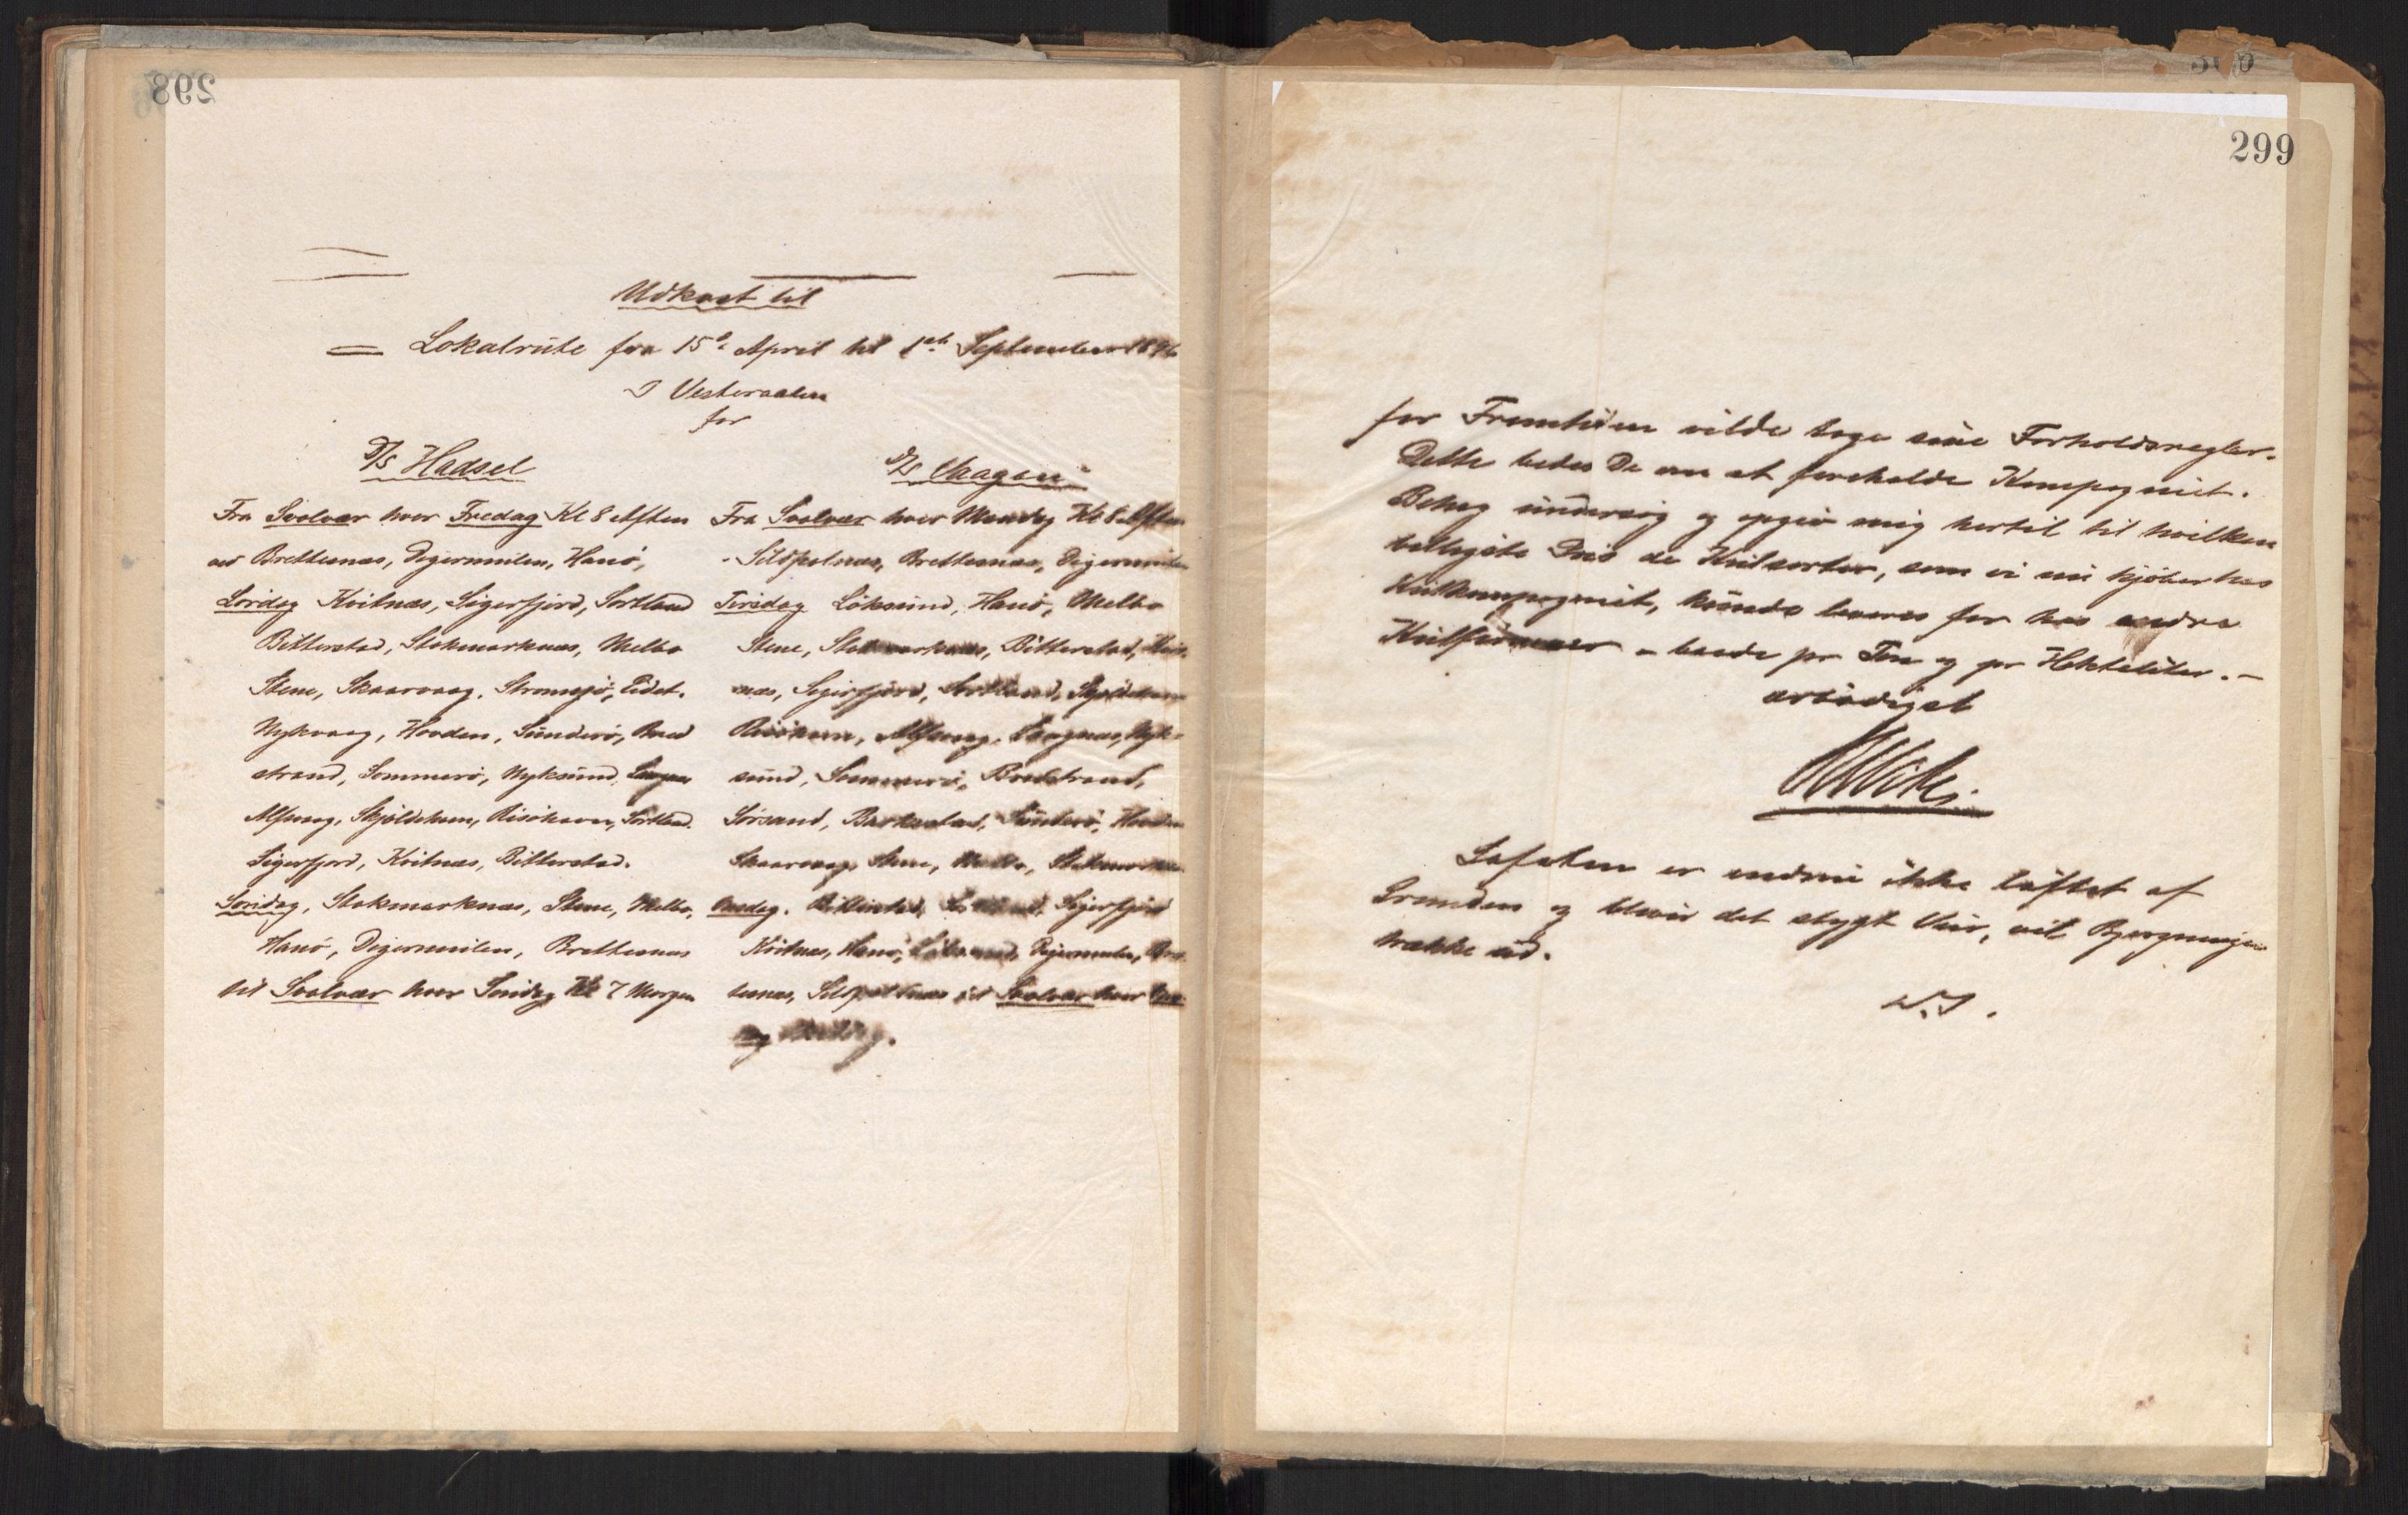 298
Udkast til
Lokalrute fra 15de April til 1ste September 1896
I Vesteraalen
for
D/S Hadsel
Fra Svolvær hver Fredag Kl 8 Aften
over Brettesnæs, Digermulen, Hanö,
Lördag Kvitnæs, Sigerfjord, Sortland
Bitterstad, Stokmarknæs, Melbo
Stene, Skaarvaag, Strømsjö, Eidet.
Nykvaag, Hovden, Sünderö, Bred
strand, Sommerö, Nyksund, Langnæs
Alfsvaag, Skjoldehavn, Risöhavn, Sortland.
Sigerfjord, Kvitnæs, Bitterstad.
Söndag, Stokmarknæs, Stene, Melbo,
Hanö, Digermulen, Brettesnæs
til Svolvær hver Söndag Kl 7 Morgen
D/S Vaagan
Fra Svolvær hver Mandag Kl 8 Aften
- Sildpolnæs, Brettesnæs, Digermulen
Tirsdag Löksund, Hanö, Melbo
Stene, Stokmarknæs, Bitterstad, Kvit-
næs, Sigerfjord, Sortland, Skjoldehavn
Risöhavn, Alfsvaag, Langnæs, Nyk-
sund, Sommerö, Bredstrand,
Sörsand, Barkestad, Sünderö, Hovden
Skaarvaag, Stene, Melbo, Stokmarknæs
Onsdag. Bitterstad, Sortland, Sigerfjord
Kvitnæs, Hanö, Löksund, Digermulen, Bret-
tesnæs, Sildpolnæs til Svolvær hver
299
for Fremtiden vilde tage sine Forholdsregler.
Dette bedes De om at foreholde Kompagniet.
Behag undersög og opgiv mig hertil til hvilken
billigste Pris de Kulsorter, som vi nu kjöber hos
Kulkompagniet, kunde leveres for hos andre
Kulfirmaer - baade pr Ton og pr Hektoliter. -
ærbödigst
Lofoten er endnu ikke löftet af
Grunden og bliver det stygt Veir, vil Bjergningen
trække ud.
D.S.